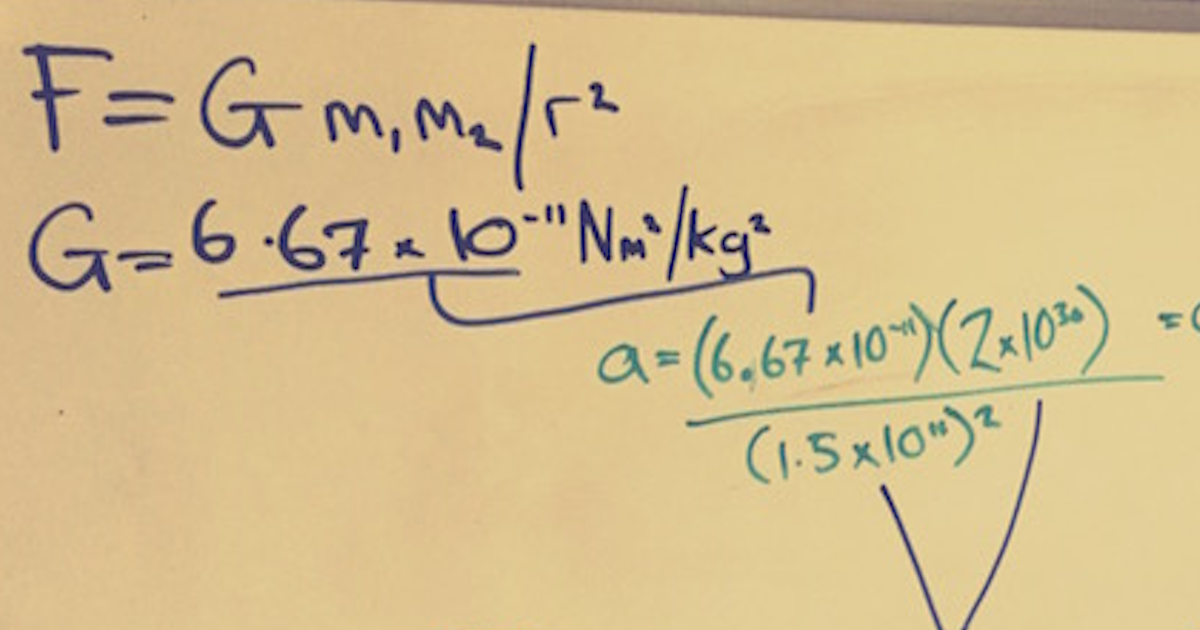 F = G m₁ m₂ / r²
G = 6.67 × 10⁻¹¹ Nm²/kg²
a = (6.67 × 10⁻¹¹)(2 × 10³⁰) =
(1.5 × 10¹¹)²